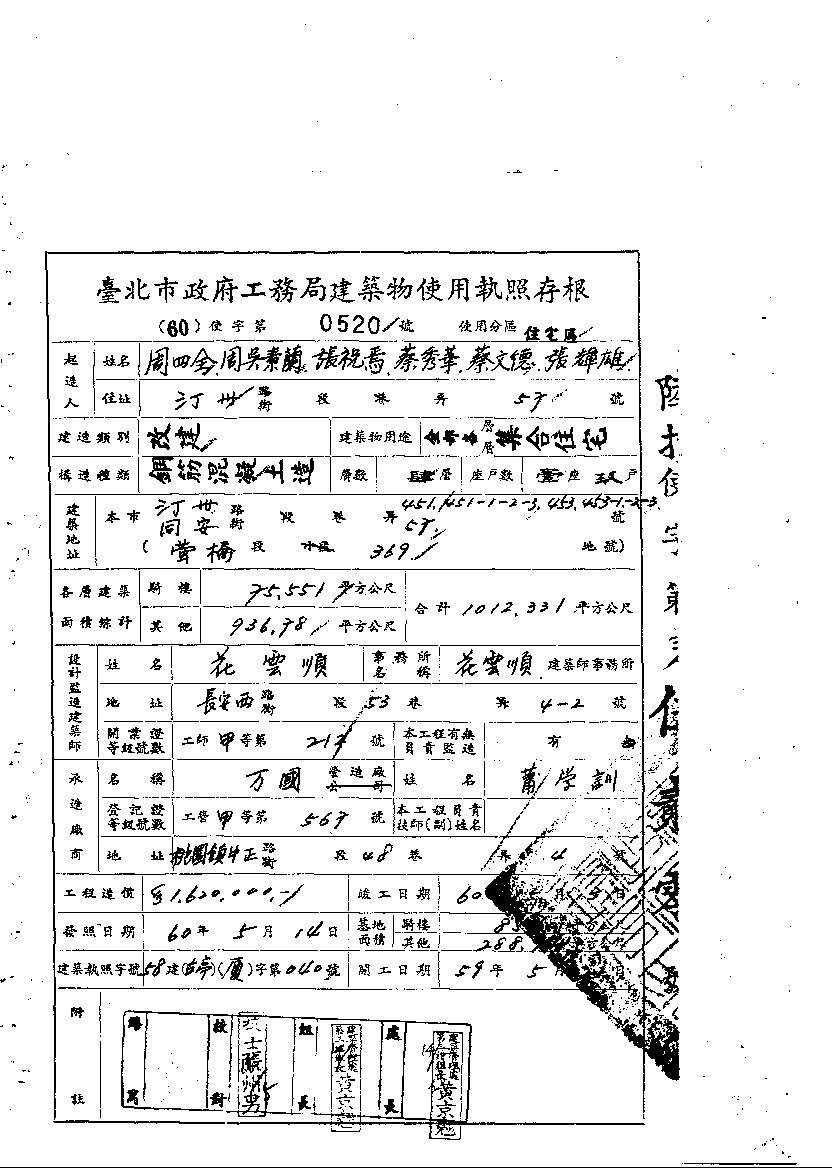 臺北市政府工務局建築物使用執照存根
(60) 使字第 0520 號 使用分區 住宅區
起造人 姓名 周四全 周吳素蘭 張祝焉 蔡秀華 蔡文德 張輝雄
住址 汀州 路街 段 巷 弄 57 號
建造類別 改建 建築物用途 層層 集合住宅
構造種類 鋼筋混凝土造 層數 肆層 座戶數 壹座 玖戶
建築地址 本市 汀州 同安 路街 段 巷 弄 451, 451-1-2-3, 453, 453-1-2-3 號
57
( 螢橋 段 小段 369 地號)
各層建築面積總計 騎樓 75,551 平方公尺 合計 1012,331 平方公尺
其他 936,78 平方公尺
設計監造建築師 姓名 花雲順 事務所名稱 花雲順 建築師事務所
地址 長安西 路街 段 53 巷 弄 4-2 號
開業證等級號數 工師 甲 等第 217 號 本工程有無負責監造 有 無
承造廠商 名稱 万國 營造廠公司 姓名 蕭学訓
登記證等級號數 工營 甲 等第 567 號 本工程負責技師(副)姓名
地址 桃園鎮中正 路街 段 48 巷 弄 4 號
工程造價 $1,620,000,- 竣工日期 60
發照日期 60 年 5 月 14 日 基地面積 騎樓 平方公尺
其他 288, 平方公尺
建築執照字號 58 建 (古亭) (廈) 字第 040 號 開工日期 59 年 5 月 日
附註 繕寫 校對 組長 處長
黃京
黃京